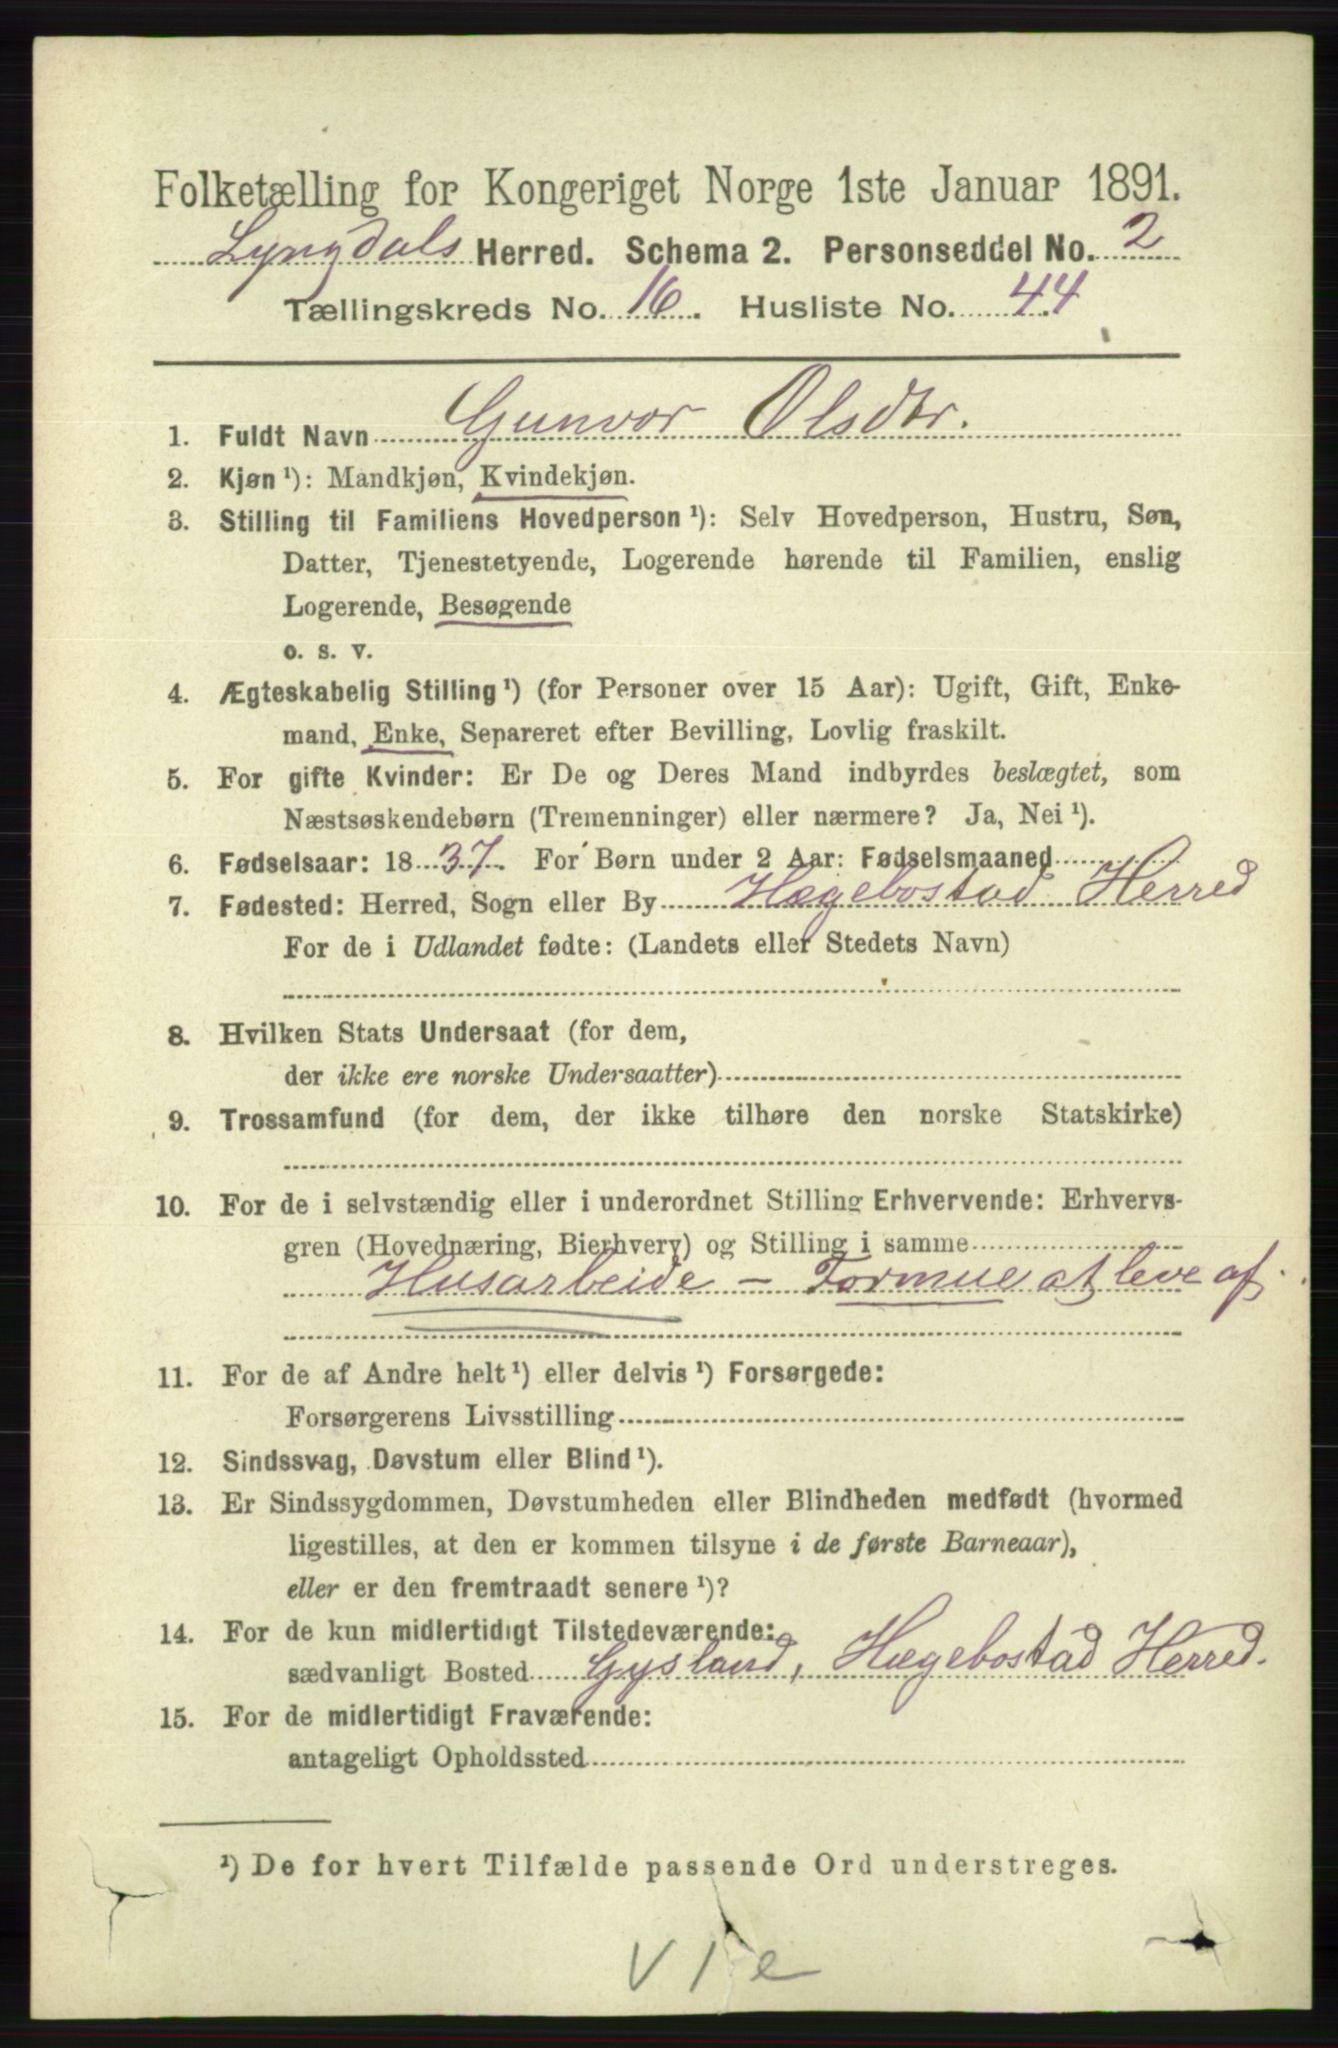 Folketælling for Kongeriget Norge 1ste Januar 1891.
Lyngdals Herred. Schema 2. Personseddel No. 2
Tællingskreds No. 16. Husliste No. 44
1. Fuldt Navn Gunvor Olsdtr.
2. Kjøn ¹): Mandkjøn, Kvindekjøn.
3. Stilling til Familiens Hovedperson ¹): Selv Hovedperson, Hustru, Søn,
Datter, Tjenestetyende, Logerende hørende til Familien, enslig
Logerende, Besøgende
o. s. v.
4. Ægteskabelig Stilling ¹) (for Personer over 15 Aar): Ugift, Gift, Enke-
mand, Enke, Separeret efter Bevilling, Lovlig fraskilt.
5. For gifte Kvinder: Er De og Deres Mand indbyrdes beslægtet, som
Næstsøskendebørn (Tremenninger) eller nærmere? Ja, Nei ¹).
6. Fødselsaar: 1837. For Børn under 2 Aar: Fødselsmaaned
7. Fødested: Herred, Sogn eller By Hægebostad Herred
For de i Udlandet fødte: (Landets eller Stedets Navn)
8. Hvilken Stats Undersaat (for dem,
der ikke ere norske Undersaatter)
9. Trossamfund (for dem, der ikke tilhøre den norske Statskirke)
10. For de i selvstændig eller i underordnet Stilling Erhvervende: Erhvervs-
gren (Hovednæring, Bierhverv) og Stilling i samme
Husarbeide - Formue at leve af.
11. For de af Andre helt ¹) eller delvis ¹) Forsørgede:
Forsørgerens Livsstilling
12. Sindssvag, Døvstum eller Blind ¹).
13. Er Sindssygdommen, Døvstumheden eller Blindheden medfødt (hvormed
ligestilles, at den er kommen tilsyne i de første Barneaar),
eller er den fremtraadt senere ¹)?
14. For de kun midlertidigt Tilstedeværende:
sædvanligt Bosted Gysland, Hægebostad Herred.
15. For de midlertidigt Fraværende:
antageligt Opholdssted
¹) De for hvert Tilfælde passende Ord understreges.
V 1 e